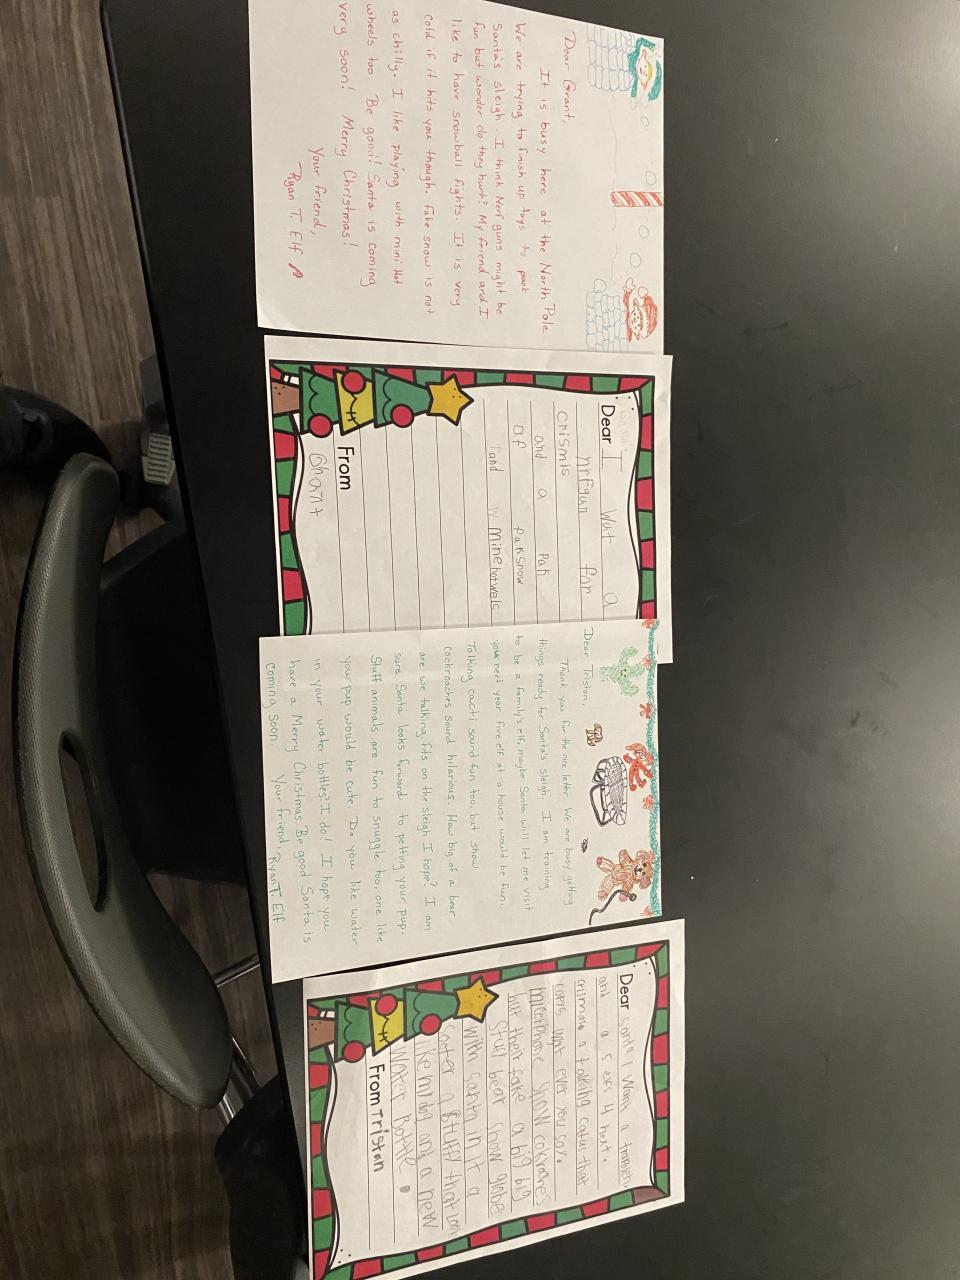 Dear Grant,
It is busy here at the North Pole
We are trying to finish up toys to pack
Santa's sleigh. I think Nerf guns might be
fun but wonder do they hurt? My friend and I
like to have snowball fights. It is very
cold if it hits you though. Fake snow is not
as chilly. I like playing with mini Hot
wheels too. Be good! Santa is coming
very soon! Merry Christmas!
Your friend,
Ryan T. Elf
Dear I wut a
nrfgun for
crismis
and a pak
of faksnow
and Minehotwels
From
Dear Triston,
Thank you for the nice letter. We are busy getting
things ready for Santa's sleigh. I am training
to be a family's elf, maybe Santa will let me visit
you next year. Five elf at a house would be fun.
Talking cacti sound fun, too, but show
cockroaches sound hilarious. How big of a bear
are we talking, fits on the sleigh I hope? I am
sure Santa looks forward to petting your pup.
Stuff animals are fun to snuggle too, one like
your pup would be cute. Do you like water
in your water bottles? I do! I hope you
have a Merry Christmas. Be good Santa is
coming soon Your friend, Ryan T. Elf
Dear santa I want a
and a 5 elfs 4 next.
a talking catus that
copis wat ever you say.
micerphone show cokroaches
but their fake a big big
Stuf bear snow globe
with santa in it a
a stuffy that look
like my dog and a new
Water Bottle.
From Tristan